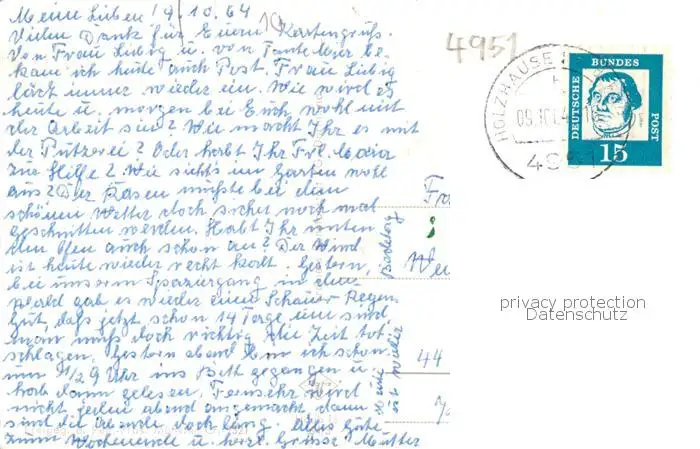 Meine Lieben! 9.10.64
Vielen Dank für Euren Kartengruß.
Von Frau Liebig u. von Tante Meer be-
kam ich heute auch Post. Frau Liebig
lädt immer wieder ein. Wie wird es
heute u. morgen bei Euch wohl mit
der Arbeit sein? Wie macht Ihr es mit
der Putzerei? Oder habt Ihr Frl. Maier
zur Hilfe? Wie sieht's im Garten wohl
aus? Der Rasen müßte bei dem
schönen Wetter doch sicher noch mal
geschnitten werden. Habt Ihr unten
den Ofen auch schon an? Der Wind
ist heute wieder recht kalt. Gestern,
bei unserm Spaziergang in dem
Wald gab es wieder einen Schauer Regen.
Gut, daß jetzt schon 14 Tage um sind
man muß doch richtig die Zeit tot
schlagen. Gestern abend bin ich schon
um 1/2 9 Uhr ins Bett gegangen u.
hab dann gelesen. Fernsehr wird
nicht jeden abend angemacht, dann
sind die abende doch lang. Alles Gute
zum Wochenende u. herzl. Grüsse Mutter
ist wieder
4951
HOLZHAUSE
09.10.64
4951
DEUTSCHE BUNDES POST
15
Fra
44
privacy protection
Datenschutz